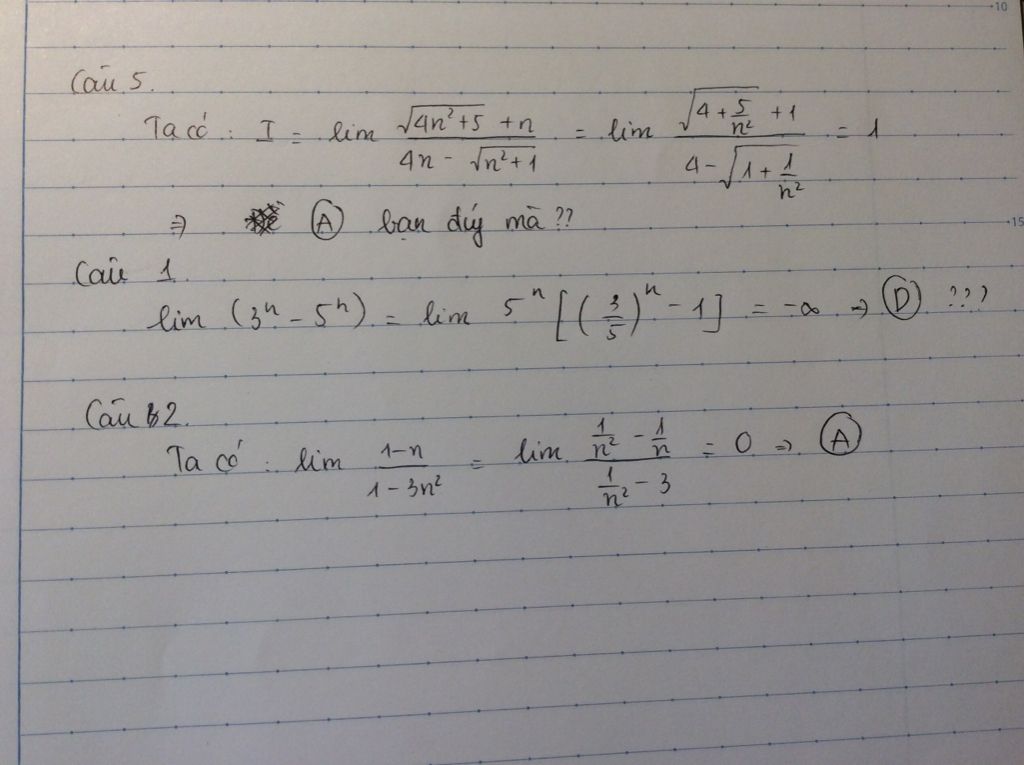 10
Câu 5.
Ta có : I = lim (√(4n²+5) + n)/(4n - √(n²+1)) = lim (√(4 + 5/n²) + 1)/(4 - √(1 + 1/n²)) = 1
⇒ Ⓐ bạn đúy mà ??
15
Câu 1
lim (3ⁿ - 5ⁿ) = lim 5ⁿ [(3/5)ⁿ - 1] = -∞ ⇒ Ⓓ ???
Câu 2.
Ta có : lim (1-n)/(1-3n²) = lim (1/n² - 1/n)/(1/n² - 3) = 0 ⇒ Ⓐ